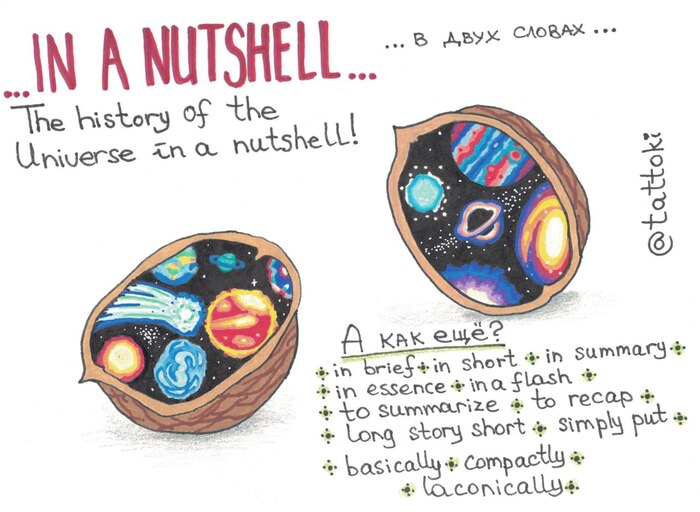 ...IN A NUTSHELL...
... В ДВУХ СЛОВАХ ...
The history of the
Universe in a nutshell!
@tattoki
А как ещё?
in brief in short in summary
in essence in a flash
to summarize to recap
long story short simply put
basically compactly
laconically